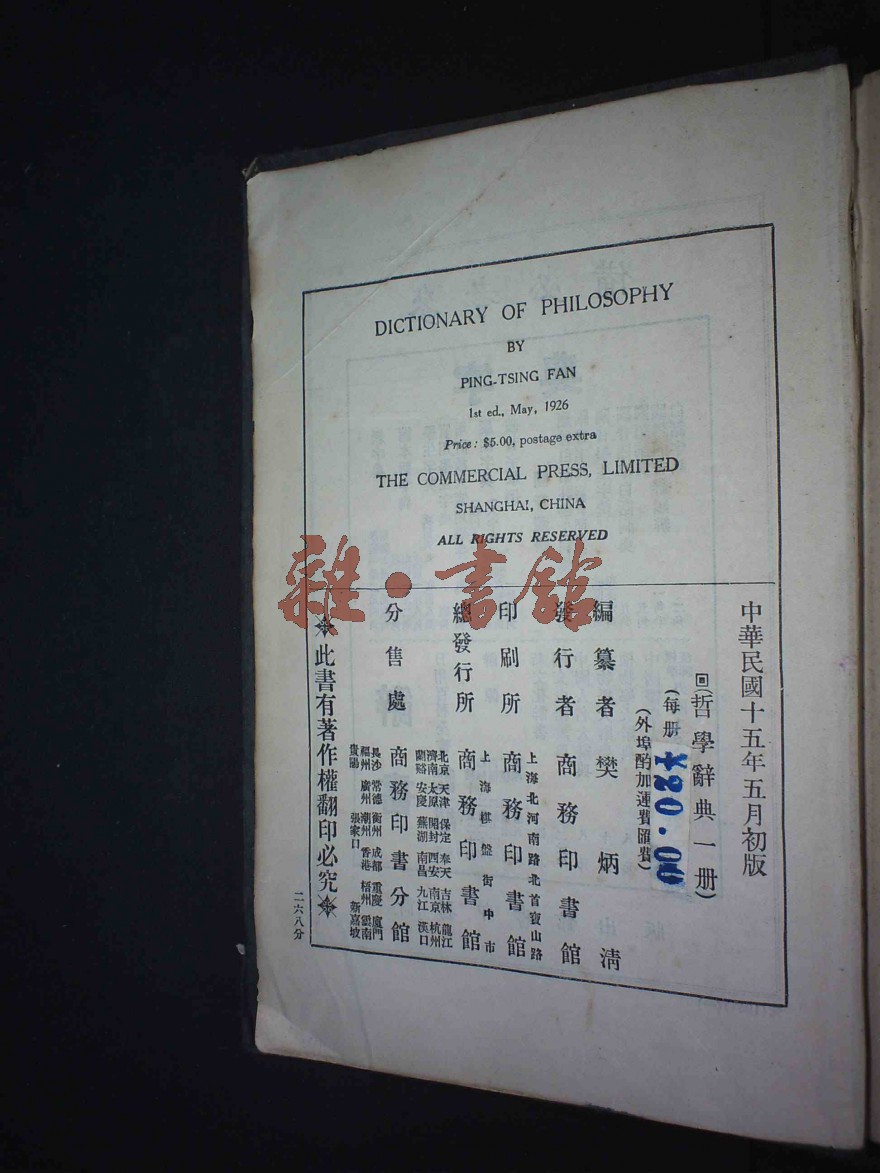 DICTIONARY OF PHILOSOPHY
BY
PING-TSING FAN
1st ed., May, 1926
Price: $5.00, postage extra
THE COMMERCIAL PRESS, LIMITED
SHANGHAI, CHINA
ALL RIGHTS RESERVED
雜·書館
中華民國十五年五月初版
回(哲學辭典一册)
(每册
¥20.00
(外埠酌加運費匯費)
編纂者 樊炳淸
發行者 商務印書館
上海北河南路北首寶山路
印刷所 商務印書館
上海棋盤街中市
總發行所 商務印書館
北京 天津 保定 奉天 吉林 龍江
濟南 太原 開封 西安 南京 杭州
蘭谿 安慶 蕪湖 南昌 九江 漢口
分售處 商務印書分館
長沙 常德 衡州 成都 重慶 廈門
福州 廣州 潮州 香港 梧州 雲南
貴陽 張家口 新嘉坡
此書有著作權翻印必究
二六八分